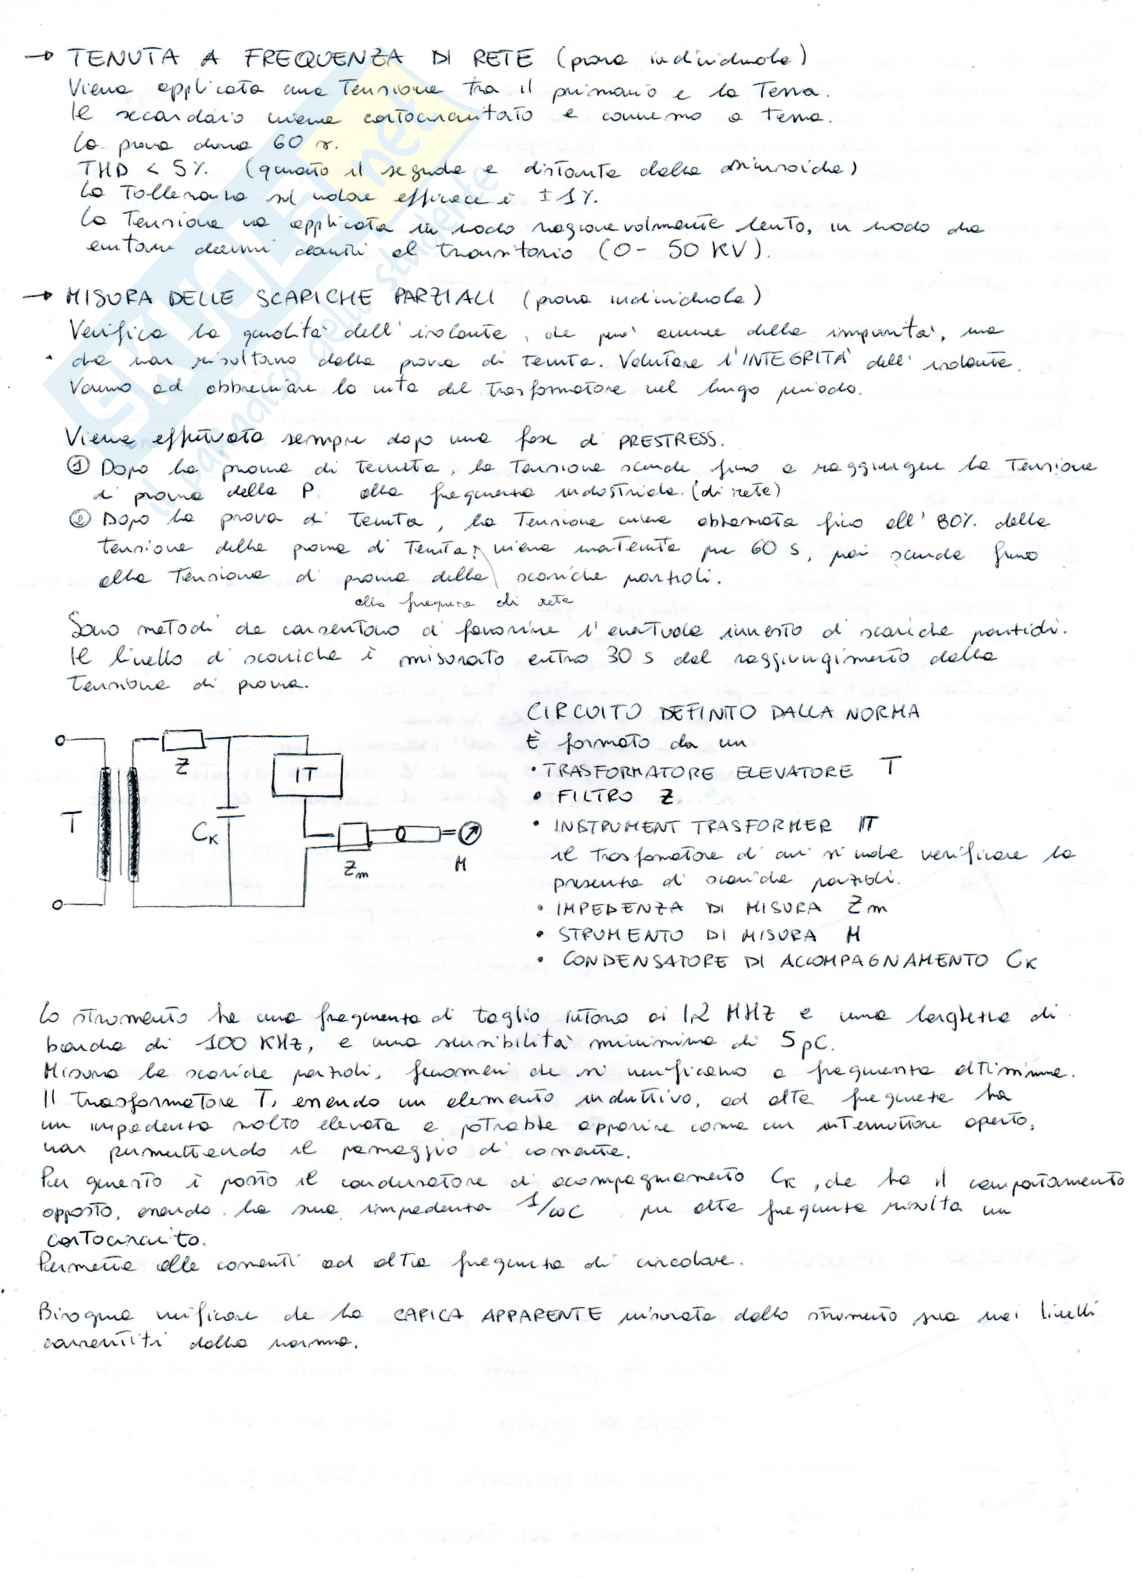 → TENUTA A FREQUENZA DI RETE (prova individuale)
Viene applicata una Tensione tra il primario e la Terra.
Il secondario viene cortocircuitato e connesso a terra.
La prova dura 60 s.
THD < 5%. (quanto il segnale e distante dalla sinusoide)
La Tolleranza sul valore efficace è ±1%.
La Tensione va applicata in modo ragionevolmente lento, in modo da
evitare danni dovuti al transitorio (0 - 50 KV).
→ MISURA DELLE SCARICHE PARZIALI (prova individuale)
Verifica la qualità dell'isolante, che può avere delle impurità, ma
che non risultano dalla prova di tenuta. Valutare l'INTEGRITÀ dell'isolante.
Vanno ad abbreviare la vita del Trasformatore nel lungo periodo.
Viene effettuata sempre dopo una fase di PRESTRESS.
① Dopo la prova di tenuta, la Tensione scende fino a raggiungere la Tensione
di prova della P. alla frequenza industriale. (di rete)
② Dopo la prova di tenuta, la Tensione viene abbassata fino all'80% della
tensione della prova di Tenuta, viene mantenuta per 60 s, poi scende fino
alla Tensione di prova delle scariche parziali.
alla frequenza di rete
Sono metodi che consentono di favorire l'eventuale innesto di scariche parziali.
Il livello di scariche è misurato entro 30 s dal raggiungimento della
Tensione di prova.
CIRCUITO DEFINITO DALLA NORMA
È formato da un
• TRASFORMATORE ELEVATORE T
• FILTRO Z
• INSTRUMENT TRASFORMER IT
il Trasformatore di cui si vuole verificare la
presenza di scariche parziali.
• IMPEDENZA DI MISURA Zm
• STRUMENTO DI MISURA M
• CONDENSATORE DI ACCOMPAGNAMENTO CK
T
Z
CK
IT
Zm
M
Lo strumento ha una frequenza di taglio intorno ai 1,2 MHz e una larghezza di
banda di 100 KHz, e una sensibilità minima di 5 pC.
Misura le scariche parziali, fenomeni che si verificano a frequenza altissima.
Il trasformatore T, essendo un elemento induttivo, ad alte frequenze ha
un impedenza molto elevata e potrebbe apparire come un interruttore aperto,
non permettendo il passaggio di corrente.
Per questo è posto il condensatore di accompagnamento CK, che ha il comportamento
opposto, essendo la sua impedenza 1/ωC per alte frequenze risulta un
cortocircuito.
Permette alle correnti ad alta frequenza di circolare.
Bisogna verificare che la CARICA APPARENTE misurata dallo strumento sia nei livelli
consentiti dalla norma.
SKUOLA.net
il paradiso dello studente